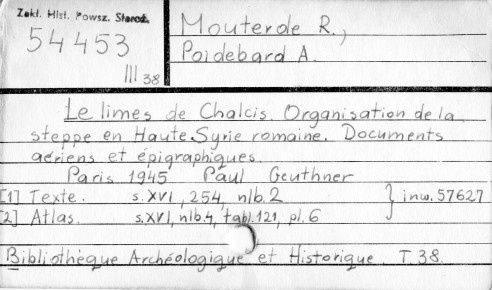 Zakł. Hist. Powsz. Staroż.
54453
III 38
Mouterde R.,
Poidebard A.
Le limes de Chalcis. Organisation de la
steppe en Haute Syrie romaine. Documents
aériens et épigraphiques.
Paris 1945 Paul Geuthner
[1] Texte. s. XVI, 254, nlb. 2
[2] Atlas. s. XVI, nlb. 4, tabl. 121, pl. 6
} inw. 57627
Bibliothèque Archéologique et Historique. T. 38.